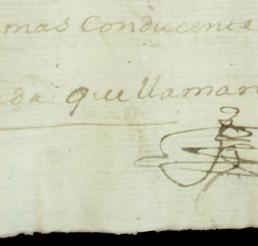 mas conducente
da que llaman